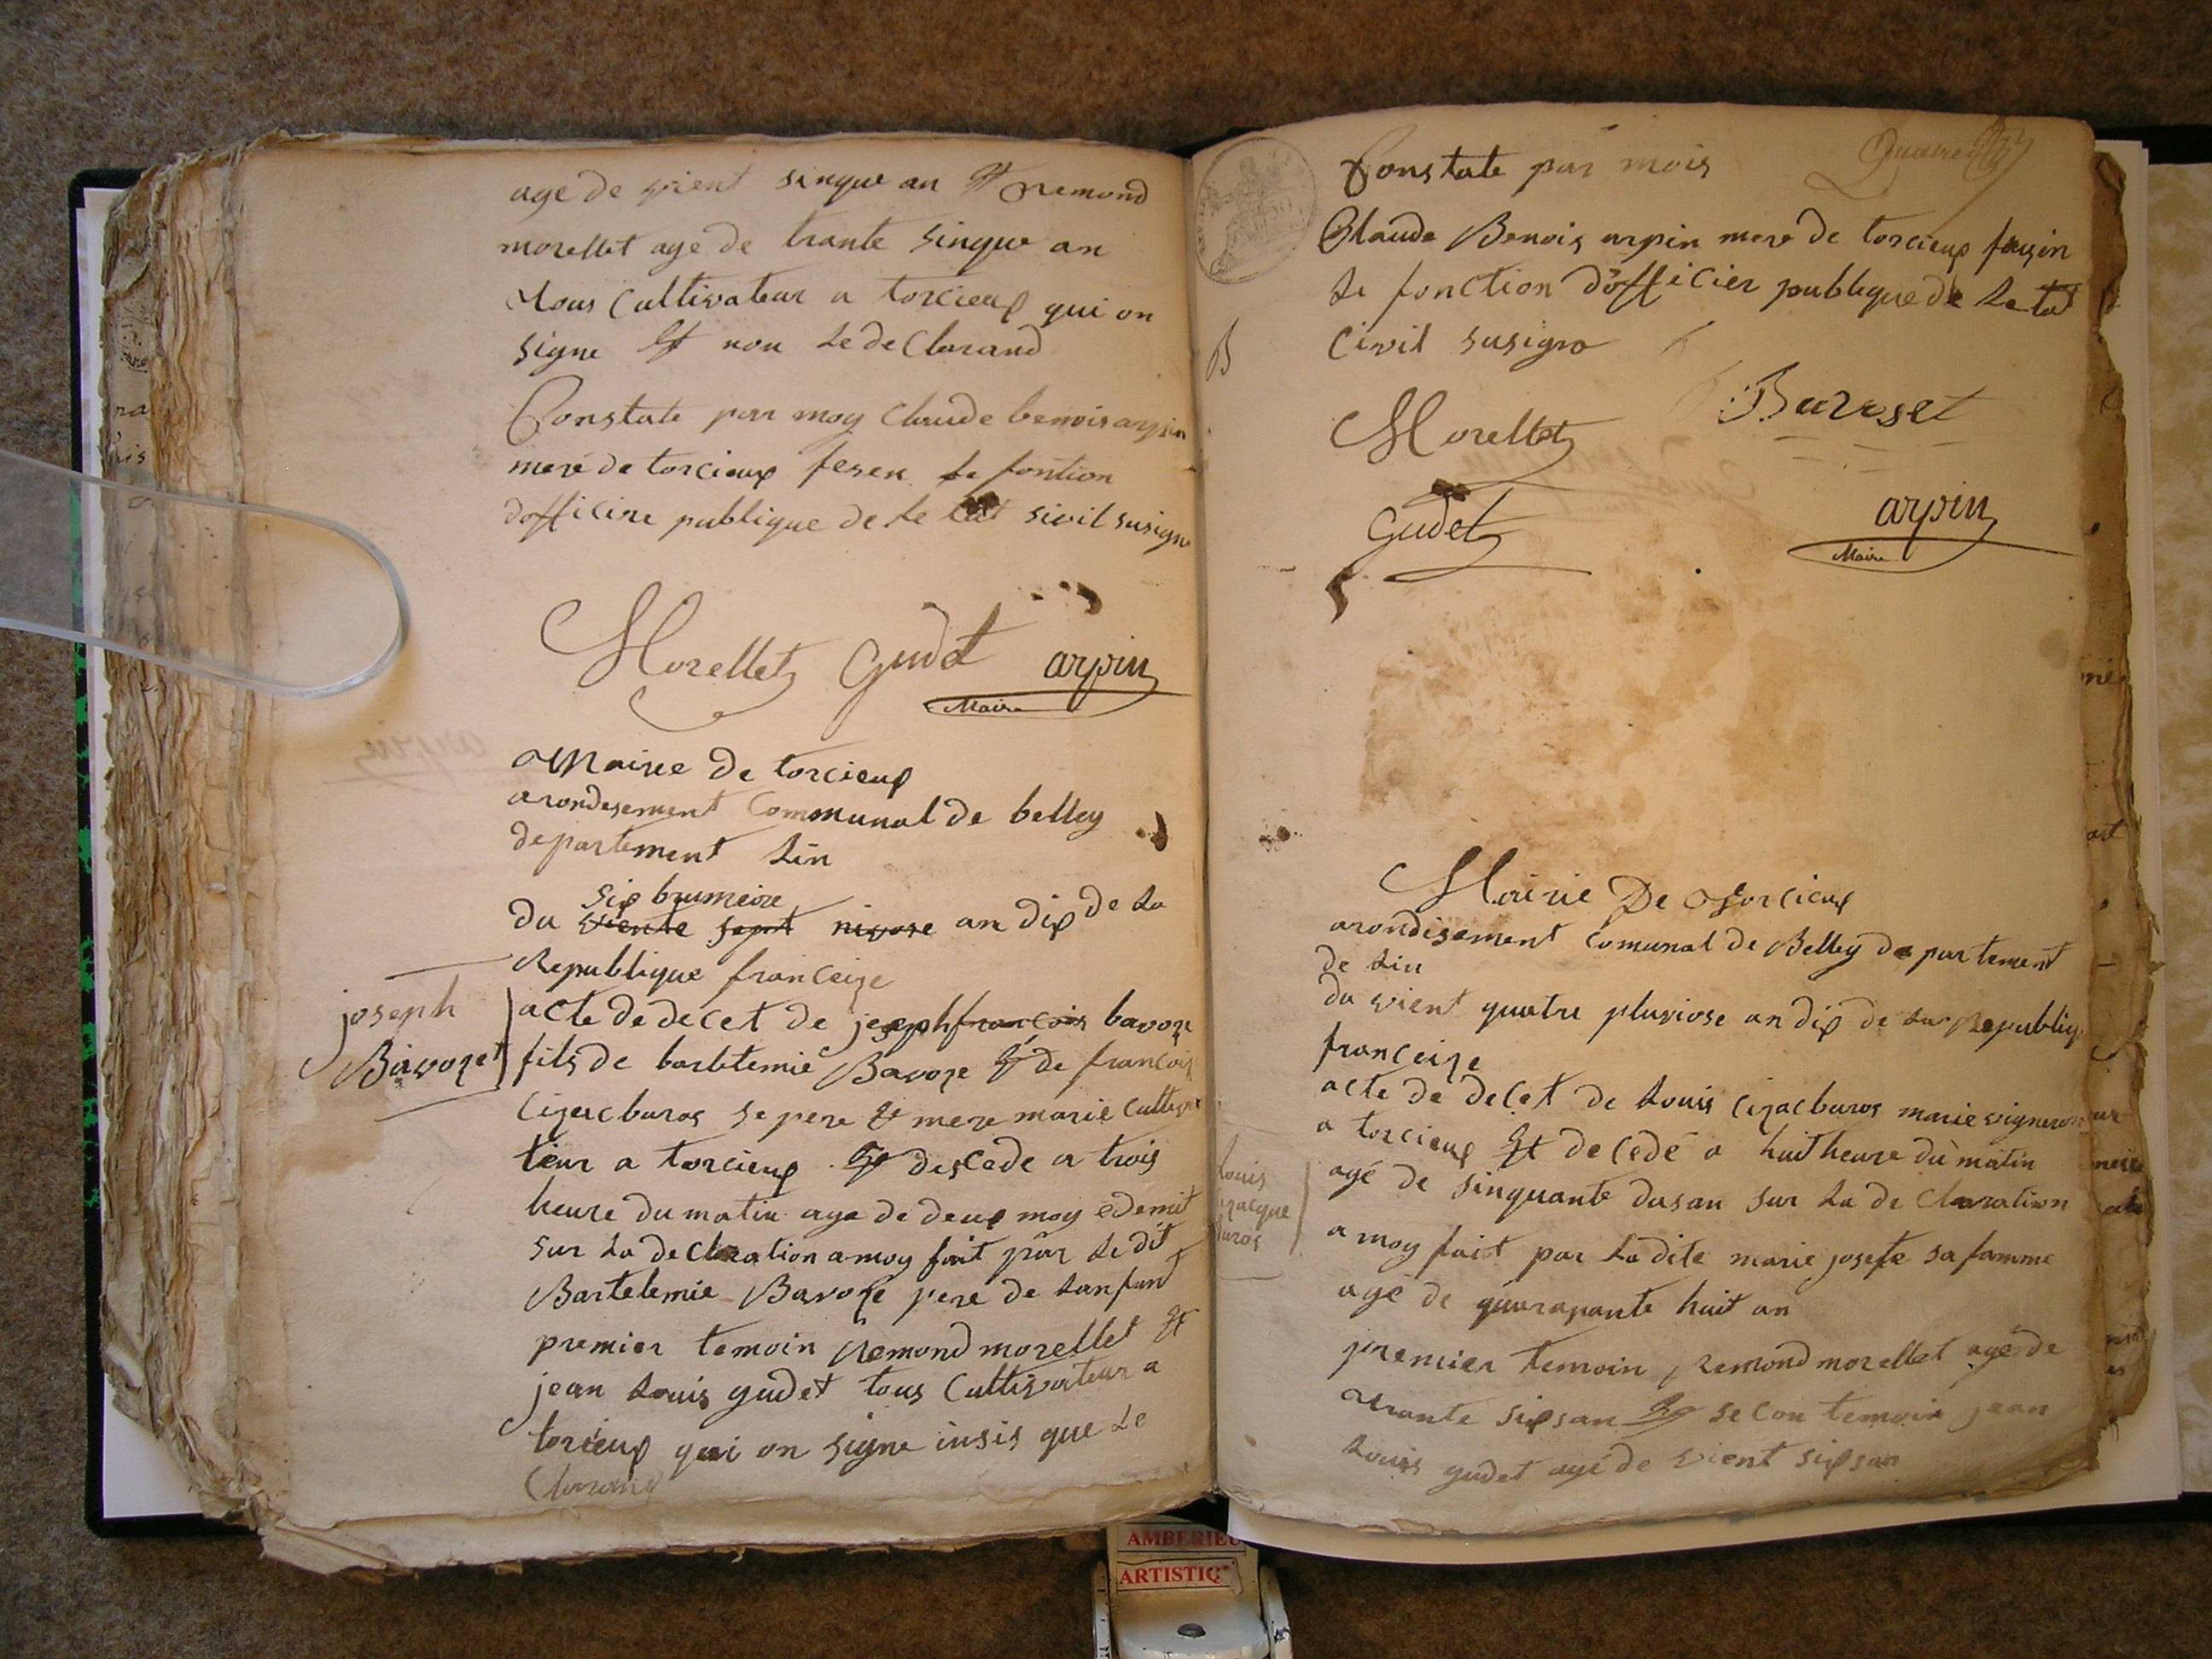 age de vient sinque an et remond
morellet age de trante sinque an
tous cultivateur a torcieux qui on
signe et non le declarand
Constate par moy claude benois arpin
mere de torcieux fesen le fontion
dofficire publique de le tat sivil susigne
Morellet Gudet arpin
Maire
Mairee de torcieux
arondesement communal de belley
departement lin
six brumeire
du viente sept nivose an dix de la
Republique franceize
joseph
Bavozet
acte de decet de joseph francois bavoze
fils de bartelemie Bavoze et de francois
cizacburos se pere et mere marie cultiva
teur a torcieux et descede a trois
heure du matin age de deux moy edemit
sur la declaration a moy fait par le dit
Bartelemie Bavoze pere de lanfant
premier temoin remond morellet et
jean louis gudet tous cultivateur a
torcieux qui on signe insis que le
Clarand
Constate par mois
Claude Benois arpin mere de torcieux faisin
le fonction d'officier publique de le tat
civil susigne
Morellet Buroset
Gudet arpin
Maire
Mairie De torcieux
arondisement comunal de Belley departement
de lin
du vient quatre pluviose an dix de la republiq
franceize
acte de decet de Louis cizacburos marie vigneron
a torcieux et decedé a huit heure du matin
Louis
izacque
buros
agé de sinquante dusan sur la de Claration
a moy fait par la dite marie josefe sa famme
agé de quarapante huit an
premier temoin remond morellet agé de
trante sixsan et secon temoin jean
Louis gudet agé de vient sixsan
AMBERIEU
ARTISTIQ